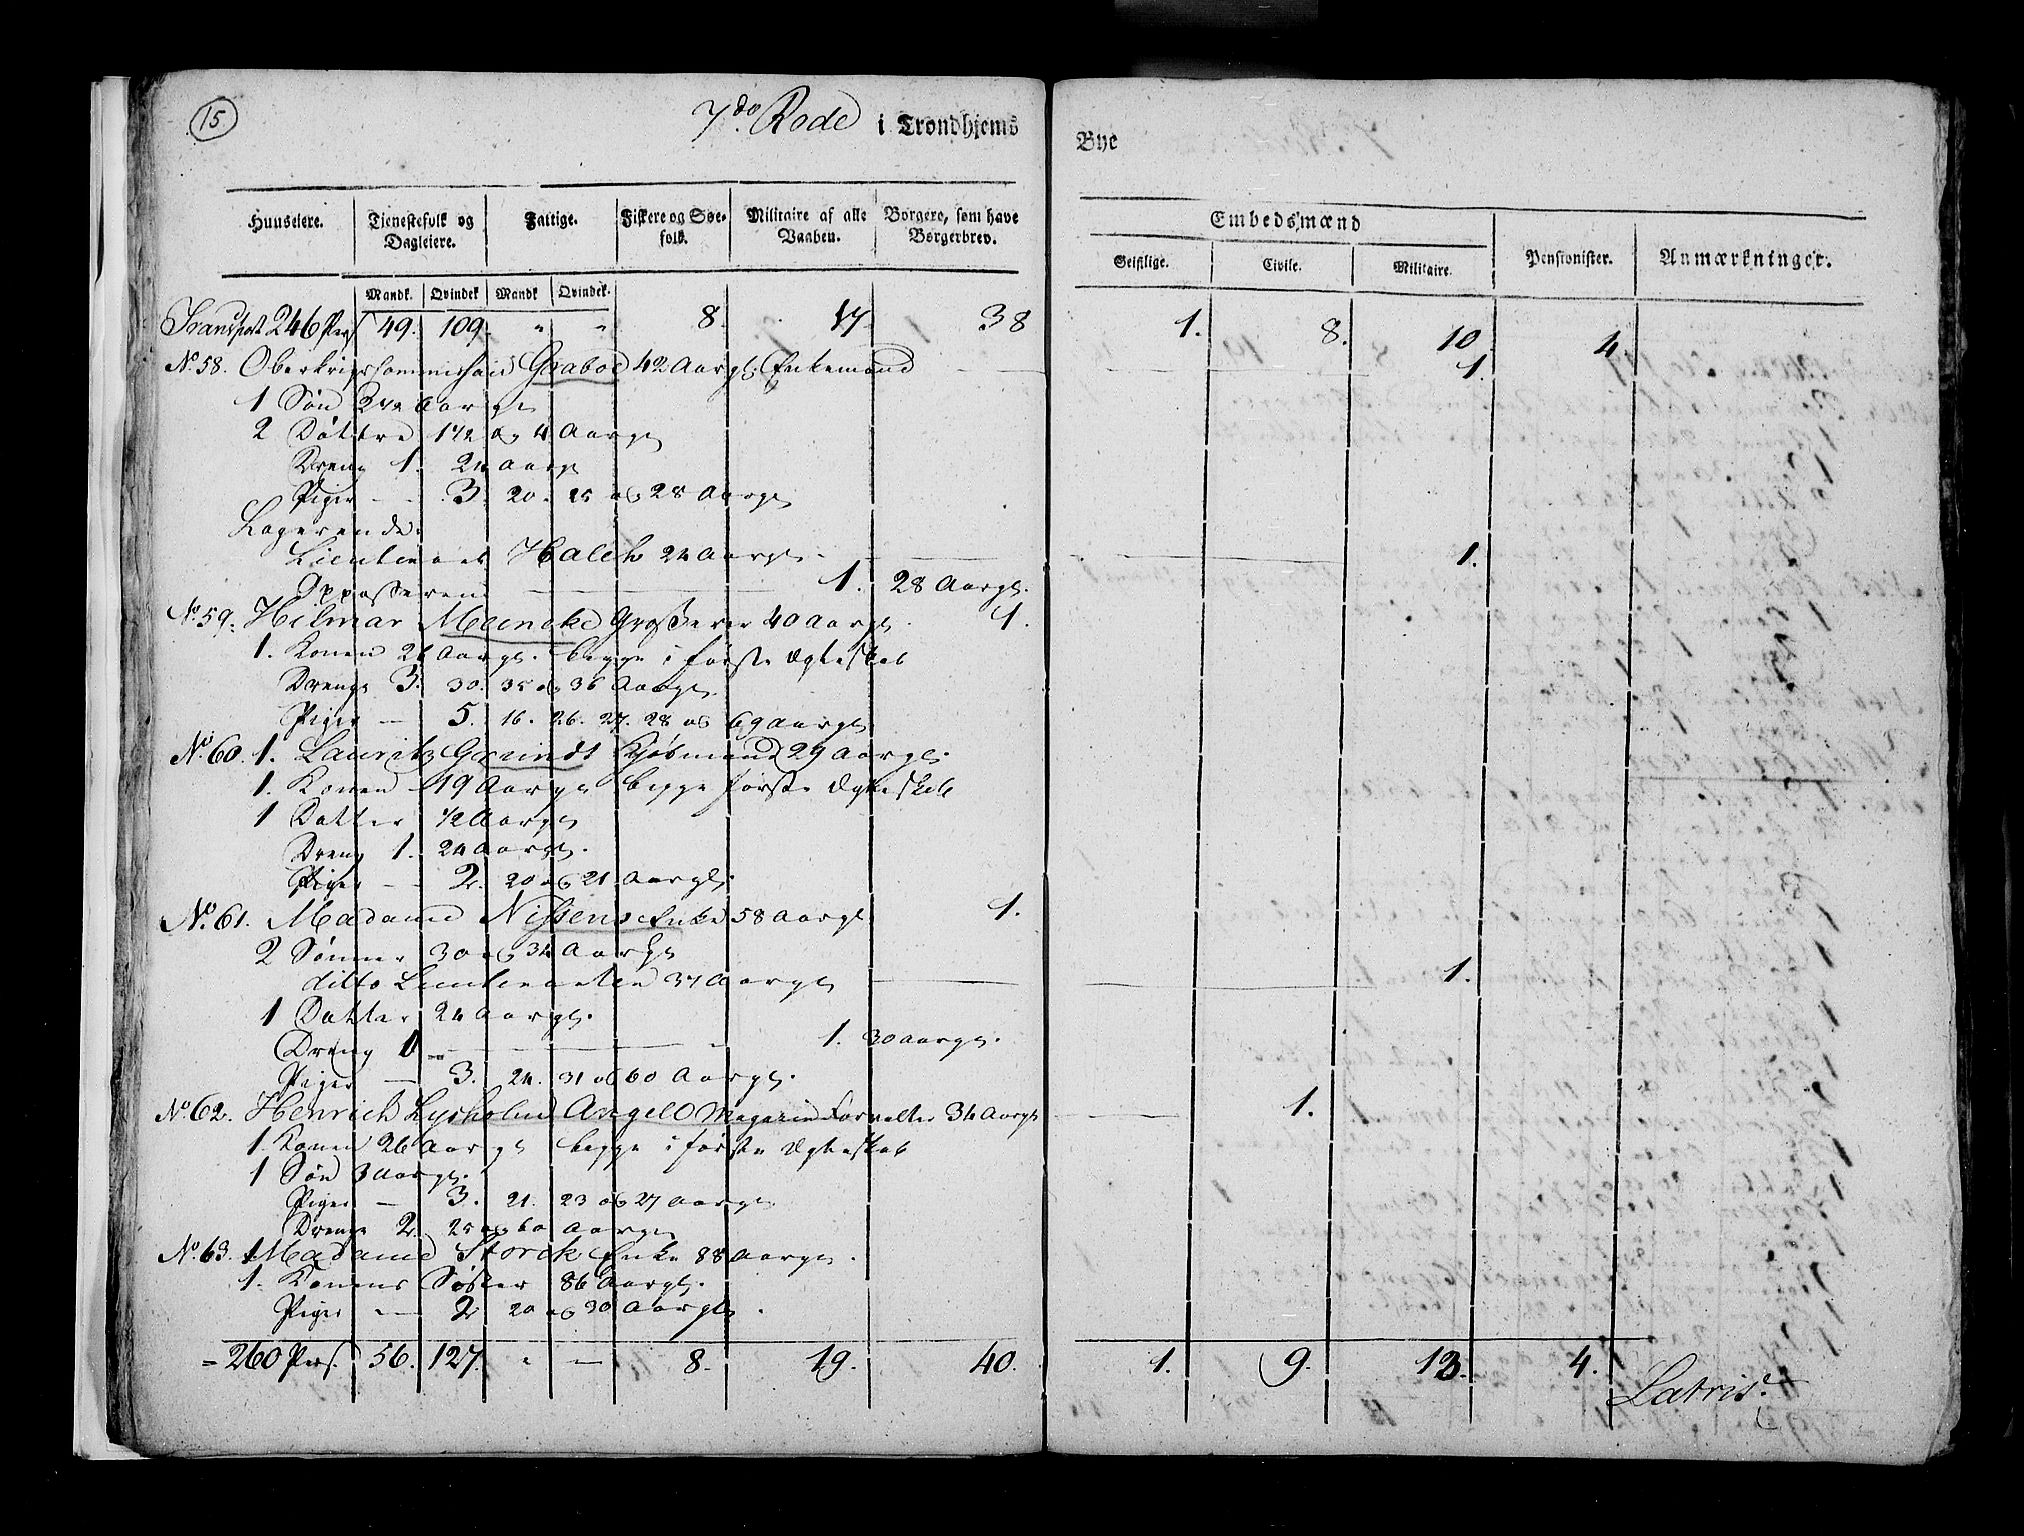 15
7de Rode i Trondhjems Bye
Huuseiere. Tjenestefolk og Dagleiere. Fattige. Fiskere og Søefolk. Militaire af alle Vaaben. Borgere, som have Borgerbrev. Embedsmænd Pensionister. Anmærkninger.
Geistlige. Civile. Militaire.
Mandk. Qvindek Mandk Qvindek.
Transport 246 Pers 49. 109. " " 8. 17. 38 1. 8. 10 4
No. 58. Oberkrigscommissair Graboe 42 Aargl. Enkemand 1.
1 Søn Aargl
2 Døttre 1 1/2 og 4 Aargl
Dreng 1. 24 Aargl
Piger — 3. 20. 25 og 28 Aargl
Logerende.
Lieutenant Halck 24 Aargl. 1.
Oppasseren 1. 28 Aargl.
No. 59. Hilmar Meincke Grosserer 40 Aargl 1.
1. Konen Aargl. begge i første Ægteskab
Drenge 3. 30. 35 og 36 Aargl
Piger — 5. 16. 26. 27. 28 og 69 Aargl
No. 60. 1. Lauritz Grundt Kjøbmand 29 Aargl.
1. Konen 19 Aargl begge første Ægteskab
1 Datter 1/2 Aargl
Dreng 1. 24 Aargl.
Piger — 2. 20 og 21 Aargl.
No. 61. Madame Nissens Enke 58 Aargl 1.
2 Sønner 30 og 34 Aargl
ditto Lieutenanten 37 Aargl 1.
1 Datter 24 Aargl.
Dreng 1. 30 Aargl.
Piger — 3. 24. 31 og 60 Aargl.
No. 62. Henrich Lysholm Angell Magazin Forvalter 34 Aargl 1.
1. Konen 26 Aargl begge i første Ægteskab
1 Søn 3 Aargl.
Piger — 3. 21. 23 og 27 Aargl
Drenge 2. 25 og 60 Aargl
No. 63. 1. Madame Storck Enke 88 Aargl.
1. Konens Søster 86 Aargl.
Piger — 2 20 og 30 Aargl.
= 260 Pers. 56. 127. " — 8. 19. 40. 1. 9. 13. 4.
Latris